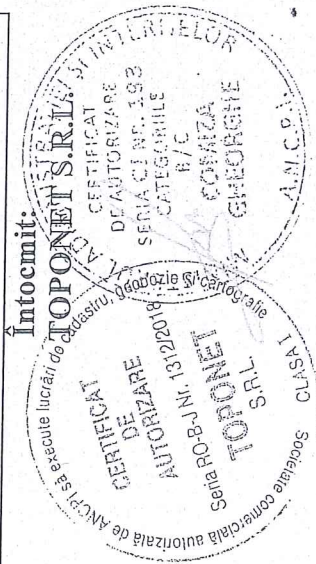 Întocmit:
TOPONET S.R.L.
ȘI INTERNELOR
CERTIFICAT
DE AUTORIZARE
SERIA CJ NR. 193
CATEGORIILE
B/C
COMZA
GHEORGHE
A.N.C.P.I.
Societate comercială autorizată de ANCPI să execute lucrări de cadastru, geodezie și cartografie
CERTIFICAT
DE
AUTORIZARE
Seria RO-B-J Nr. 1312/2018
TOPONET
S.R.L.
CLASA I